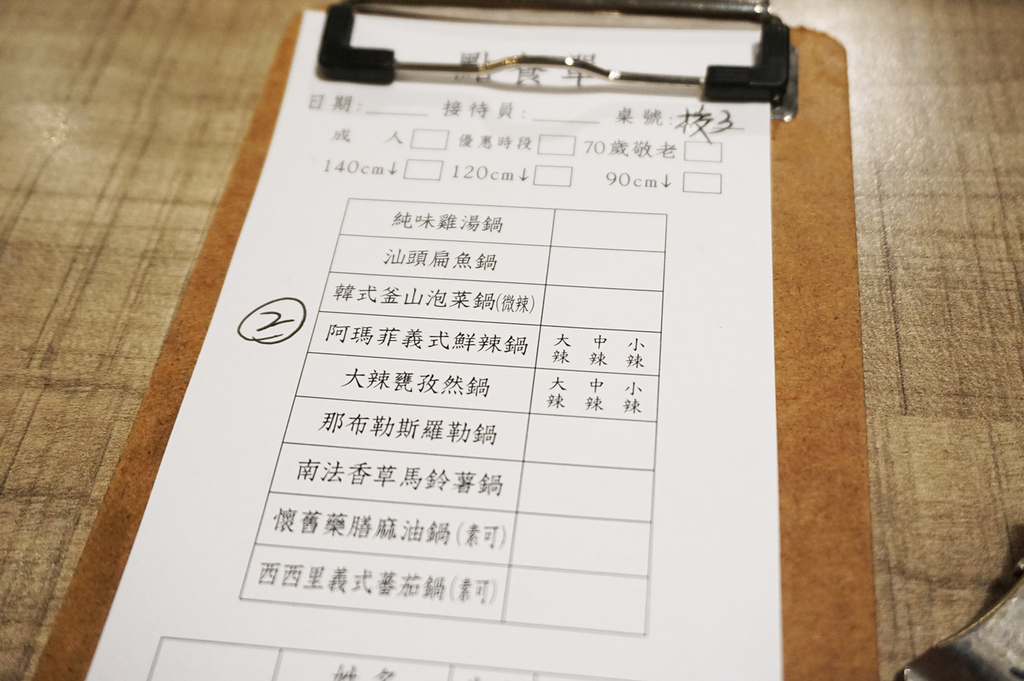 點食單
日期: 接待員: 桌號:校3
成 人 優惠時段 70歲敬老
140cm↓ 120cm↓ 90cm↓
純味雞湯鍋
汕頭扁魚鍋
韓式釜山泡菜鍋(微辣)
②
阿瑪菲義式鮮辣鍋 大辣 中辣 小辣
大辣甕孜然鍋 大辣 中辣 小辣
那布勒斯羅勒鍋
南法香草馬鈴薯鍋
懷舊藥膳麻油鍋(素可)
西西里義式蕃茄鍋(素可)
姓名